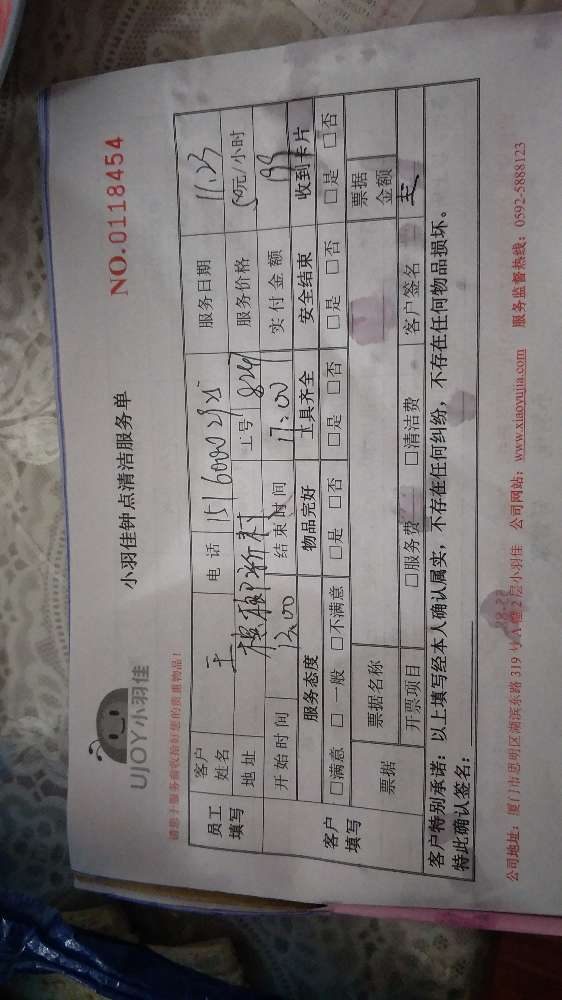 UJOY小羽佳
小羽佳钟点清洁服务单
NO.0118454
请您于服务前收拾好您的贵重物品!
员工填写
客户姓名 王 电话 服务日期 11.23
地址 工号 服务价格 50元/小时
开始时间 13:00 结束时间 17:00 实付金额
客户填写
服务态度 物品完好 工具齐全 安全结束 收到卡片
□满意 □一般 □不满意 □是 □否 □是 □否 □是 □否 □是 □否
票据 票据名称 票据金额
开票项目 □服务费 □清洁费 客户签名
客户特别承诺:以上填写经本人确认属实,不存在任何纠纷,不存在任何物品损坏。
特此确认签名:
公司地址:厦门市思明区湖滨东路 319 号 A 幢 2 层小羽佳 公司网站:www.xiaoyujia.com 服务监督热线:0592-5888123